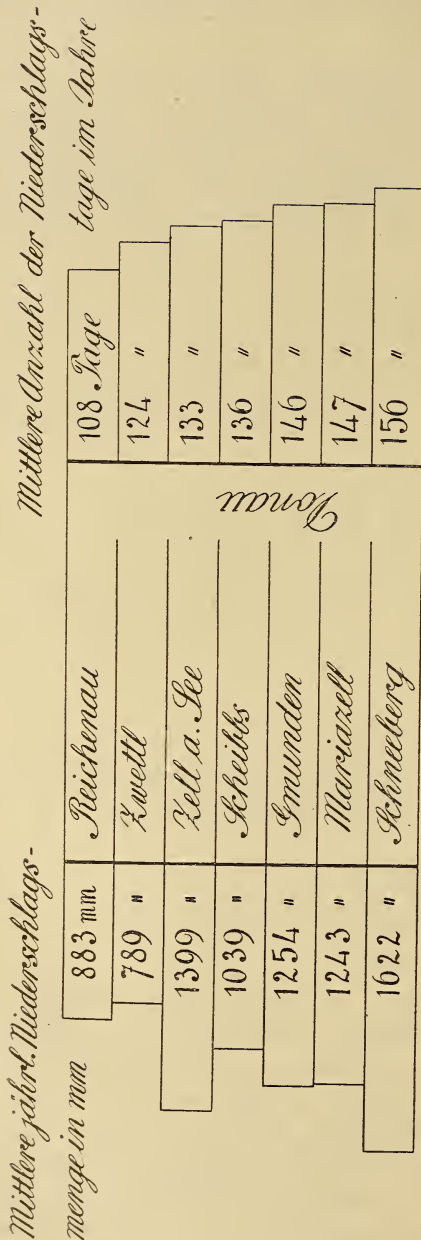 Mittlere jährl. Niederschlags-
menge in mm
Mittlere Anzahl der Niederschlags-
tage im Jahre
883 mm Reichenau 108 Tage
789 " Zwettl 124 "
1399 " Zell a. See 133 "
1039 " Scheibbs 136 "
1254 " Gmunden 146 "
1243 " Mariazell 147 "
1622 " Schneeberg 156 "
Donau